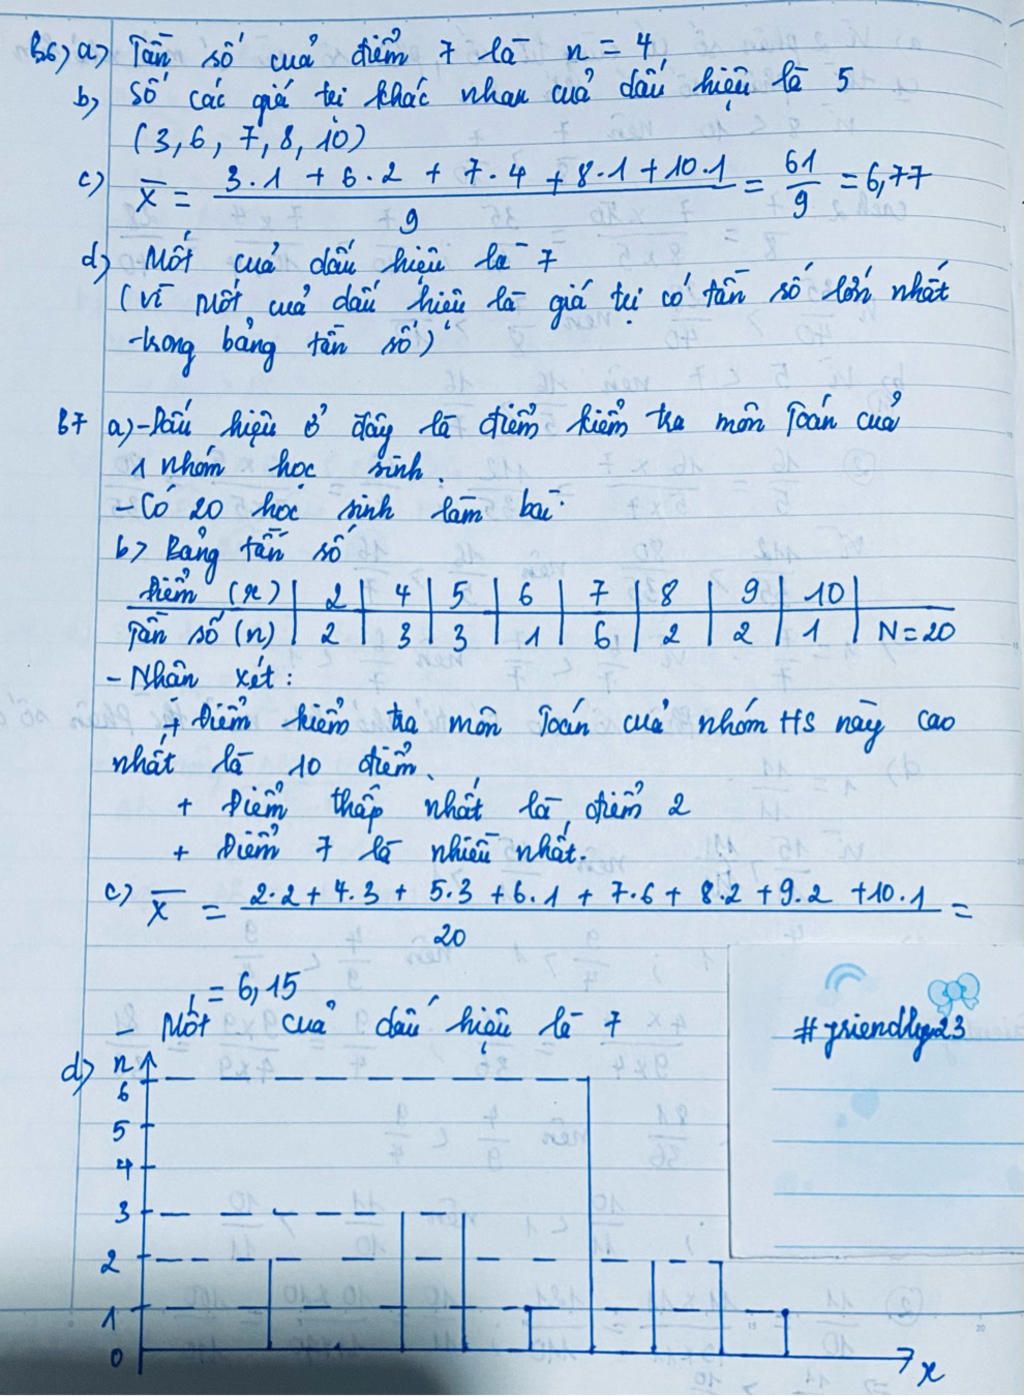 B6, a, Tần số của điểm 7 là n = 4
b, Số các giá trị khác nhau của dấu hiệu là 5
(3, 6, 7, 8, 10)
c) X̄ = (3.1 + 6.2 + 7.4 + 8.1 + 10.1)/9 = 61/9 = 6,77
d, Mốt của dấu hiệu là 7
(vì Mốt của dấu hiệu là giá trị có tần số lớn nhất
trong bảng tần số)
B7 a) - Dấu hiệu ở đây là điểm kiểm tra môn Toán của
1 nhóm học sinh.
- Có 20 học sinh làm bài.
b> Bảng tần số
Điểm (x) | 2 | 4 | 5 | 6 | 7 | 8 | 9 | 10 |
Tần số (n) | 2 | 3 | 3 | 1 | 6 | 2 | 2 | 1 | N = 20
- Nhân xét:
+ Điểm kiểm tra môn Toán của nhóm HS này cao
nhất là 10 điểm.
+ Điểm thấp nhất là điểm 2
+ Điểm 7 là nhiều nhất.
c, X̄ = (2.2 + 4.3 + 5.3 + 6.1 + 7.6 + 8.2 + 9.2 + 10.1)/20 =
= 6,15
- Mốt của dấu hiệu là 7
d, n
6
5
4
3
2
1
0
x